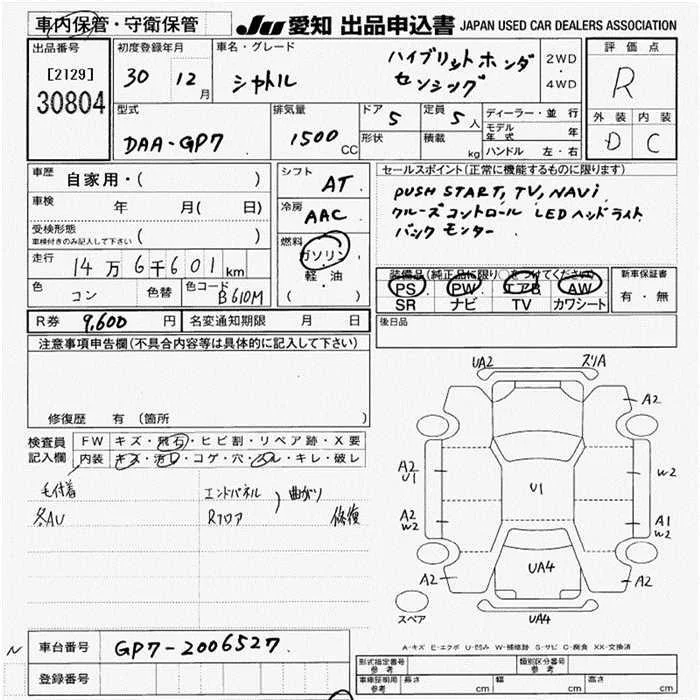 車内保管・守衛保管
JU 愛知 出品申込書 JAPAN USED CAR DEALERS ASSOCIATION
出品番号
[2129]
30804
初度登録年月
30 12月
車名・グレード
シャトル
ハイブリット ホンダ
センシング
2WD
・
4WD
評価点
R
外装 内装
D C
型式
DAA-GP7
排気量
1500 CC
ドア 5
形状
定員 5人
積載 kg
ディーラー・並行
モデル年式 年
ハンドル 左・右
車歴 自家用・( )
車検 年 月( 日)
受検形態
車検付きのみ記入して下さい ( )
走行 14万6千601km
色 コン 色替 色コード B610M
シフト AT
冷房 AAC
燃料
ガソリン
・
軽油
( )
セールスポイント(正常に機能するものに限ります)
PUSH START, TV, NAVi
クルーズコントロール LEDヘッドライト
バックモンター.
装備品(純正品に限り○をつけてください)
PS PW エアB AW
SR ナビ TV カワシート
新車保証書
有・無
R券 9,600 円 名変通知期限 月 日
後日品
注意事項申告欄(不具合内容等は具体的に記入して下さい)
修復歴 有(箇所 )
検査員記入欄
FW キズ・飛石・ヒビ割・リペア跡・X要
内装 キズ・汚れ・コゲ・穴・スレ・キレ・破レ
毛付着 エンドパネル 曲がり
各AU Rフロア 修復
UA2 スリA
A2
A2
U1
U1
W2
A2
W2
A1
W2
A2
UA4
A2
UA4
スペア
A-キズ E-エクボ U-凹み W-補修跡 S-サビ C-腐食 XX-交換済
N
車台番号 GP7-2006527
登録番号
形式指定番号
参考
類別区分番号
参考
車庫証明用
参考
長さ cm 幅 cm 高さ cm